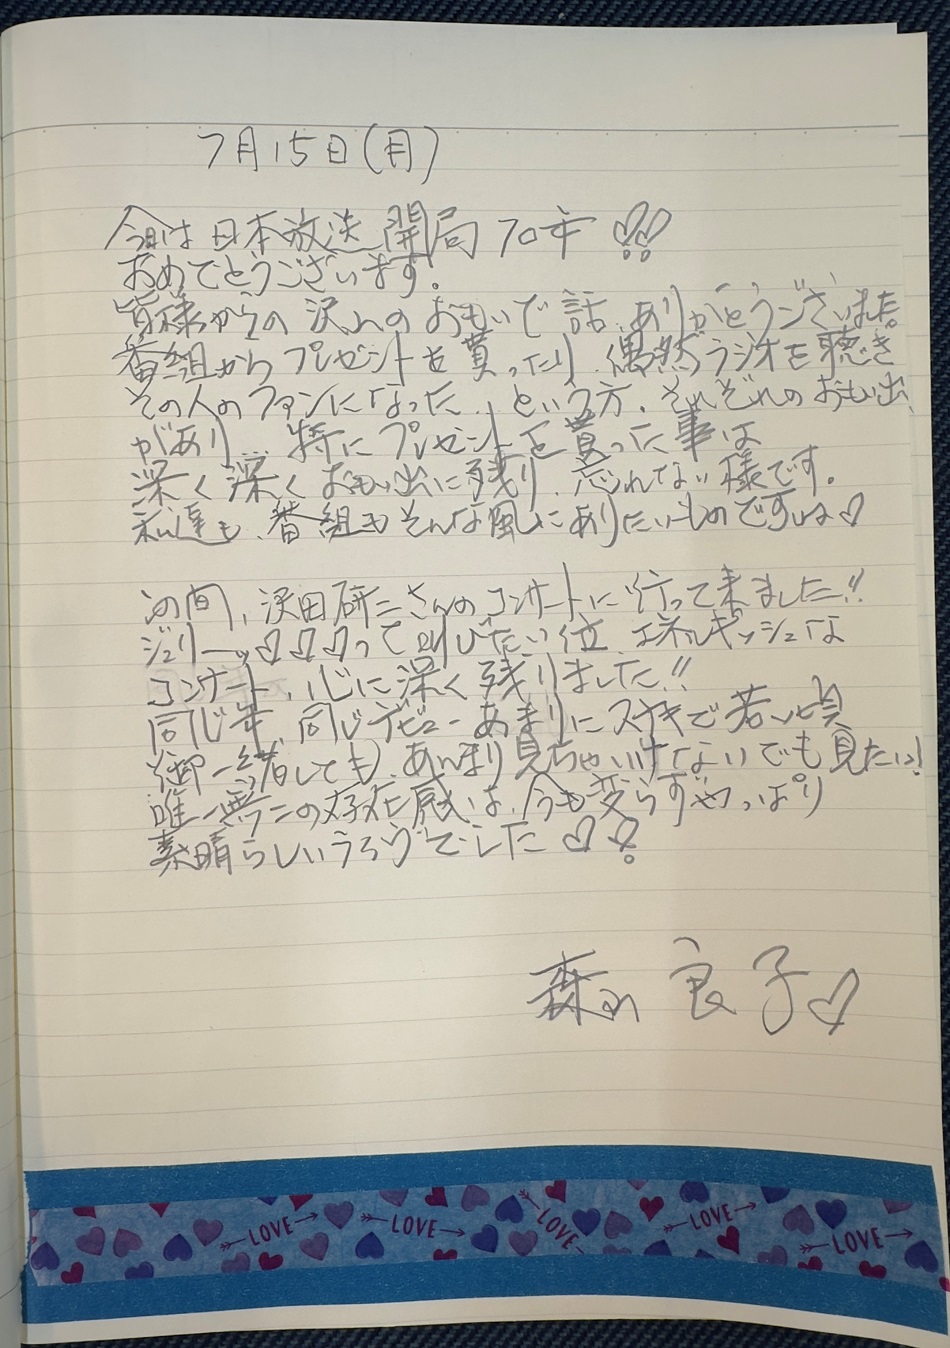 7月15日(月)
今日は日本放送開局70年♡♡!!
おめでとうございます。
皆様からの沢山のおもいで話、ありがとうございました。
番組からプレゼントを貰ったり、偶然ラジオを聴き
その人のファンになった、という方、それぞれのおもい出
があり、特にプレゼントを貰った事は
深く深くおもい出に残り、忘れない様です。
私達も、番組もそんな風にありたいものですね♡
この間、沢田研二さんのコンサートに行って来ました!!
ジュリーッ♡♡♡って叫びたい位、エネルギッシュな
コンサート、心に深く残りました!!
同じ年、同じデビュー あまりにステキで若い頃
御一緒しても、あんまり見ちゃいけないでも見たいっ!
唯一無二の存在感は、今も変らずやっぱり
素晴らしいうろうでした♡♡!!
森山良子♡
LOVE LOVE LOVE LOVE LOVE